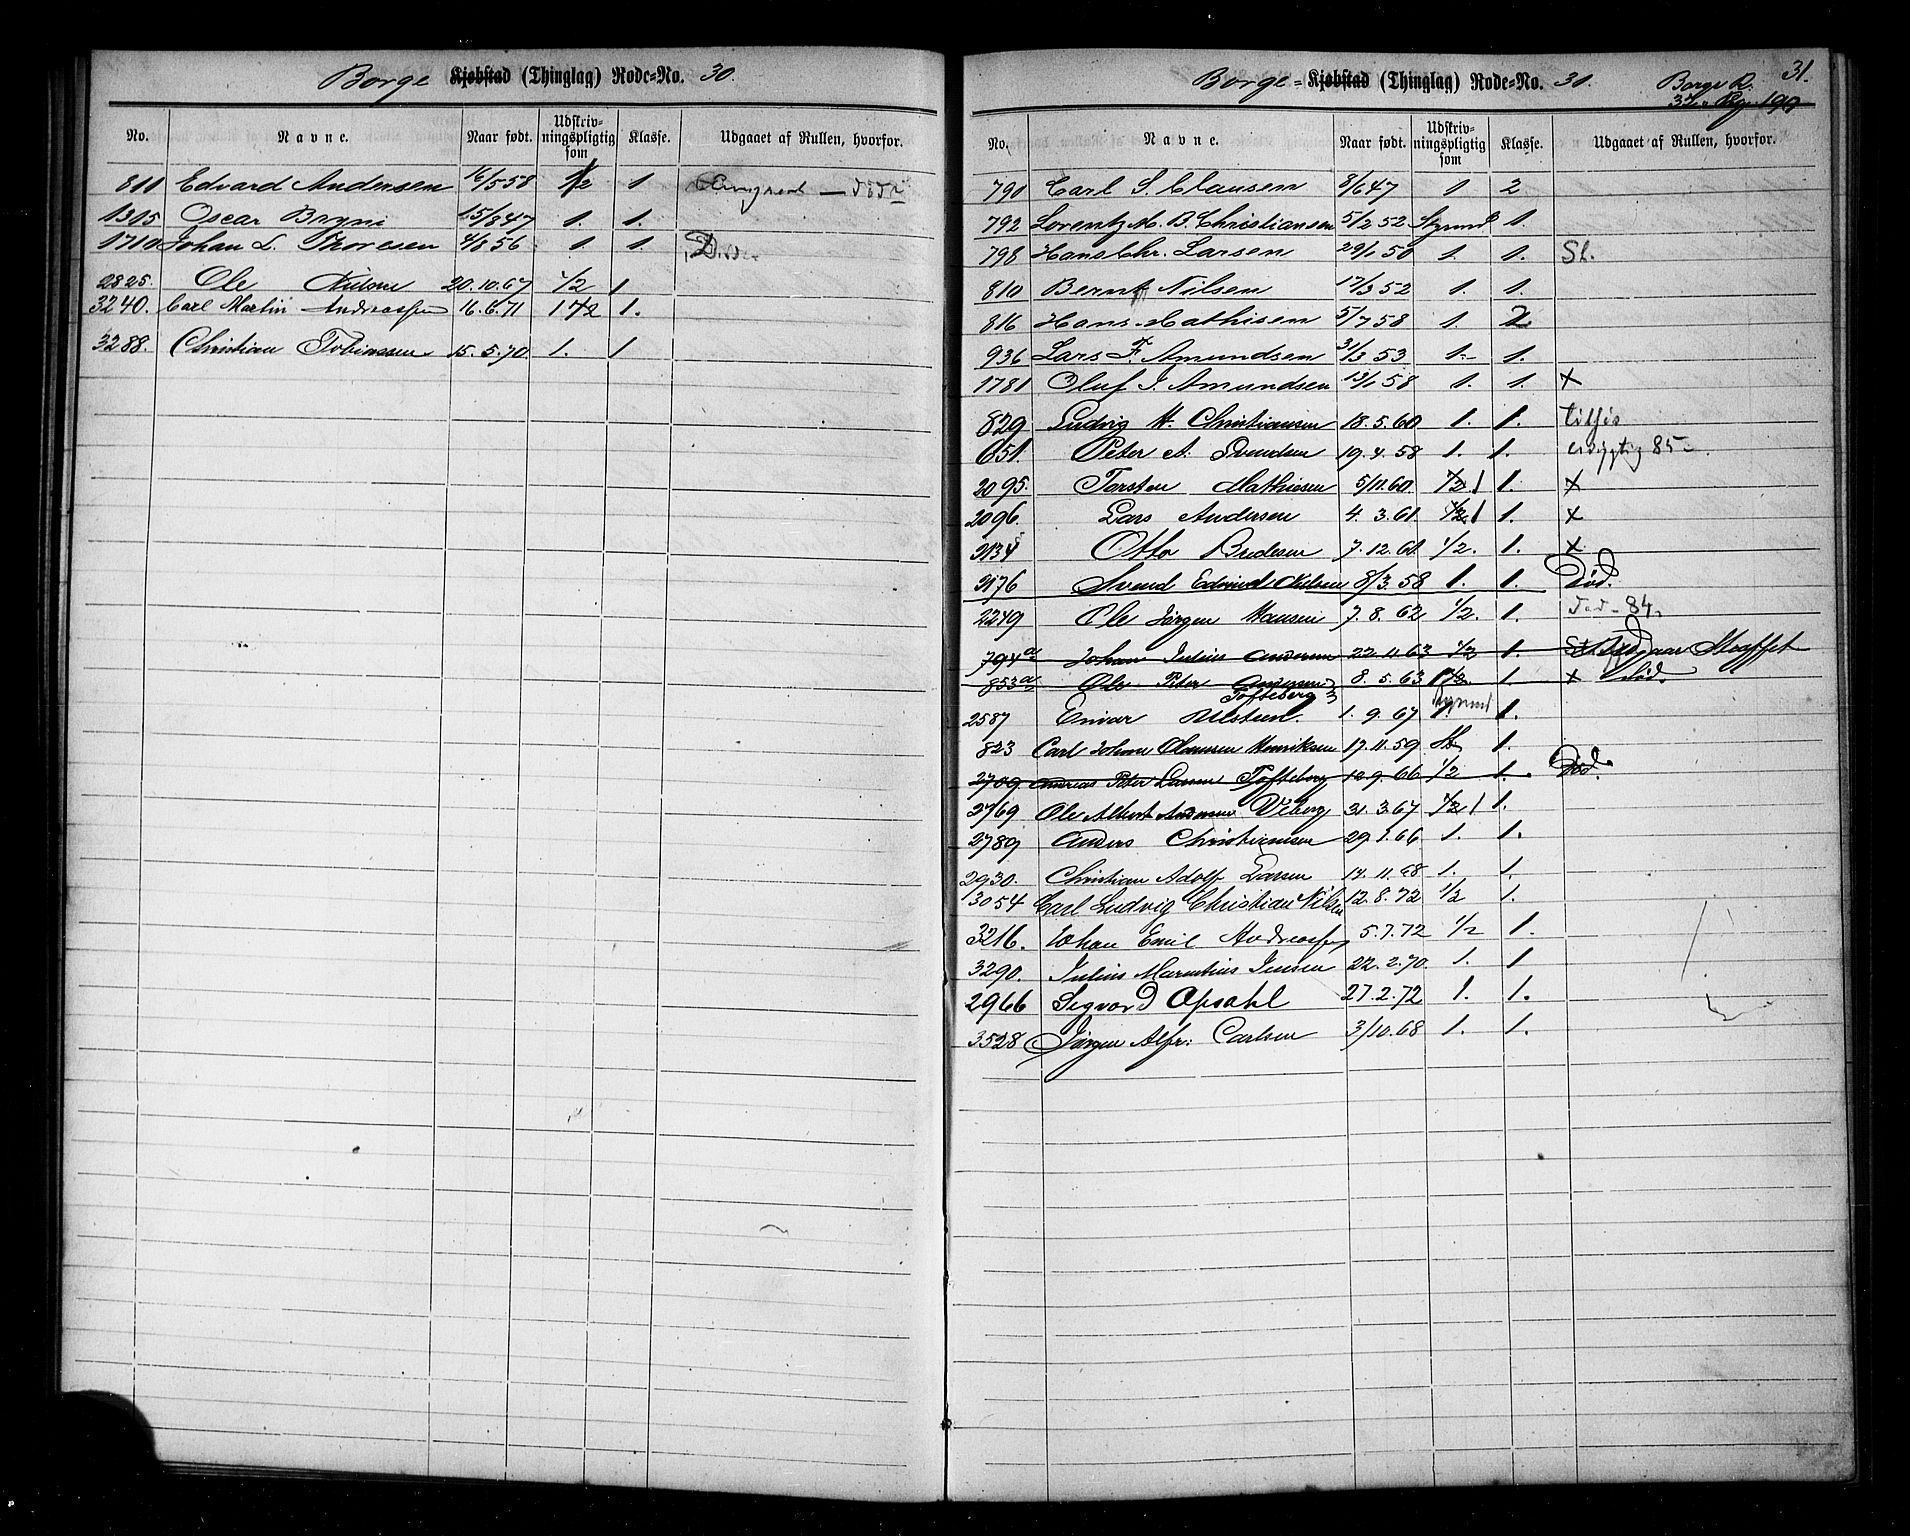 Borge Kjøbstad (Thinglag) Rode=No. 30.
No. Navne. Naar født. Udskrivningspligtig som Klasse. Udgaaet af Rullen, hvorfor.
811 Edvard Andersen 16/5 58 1/2 1
1315 Oscar Bryni 15/8 47 1. 1.
1710 Johan L. Thoresen 4/8 56 1 1.
2825. Ole Nilsen 20.10.67 1/2 1
3240. Carl Martin Andreassen 16.6.71 1 1/2 1.
3288. Christian Tobiassen 15.5.70 1. 1
Borge Kjøbstad (Thinglag) Rode=No. 31. Borge R. 31.
No. Navne. Naar født. Udskrivningspligtig som Klasse. Udgaaet af Rullen, hvorfor.
790 Carl S. Clausen 8/6 47 1 2
792 Lorentz M. B. Christiansen 5/2 52 Styrmd 1.
798 Hans Chr. Larsen 29/1 50 1. 1. Sl.
810 Bernt Nilsen 17/3 52 1. 1.
816 Hans Mathisen 5/7 58 1. 2
936 Lars F. Amundsen 31/3 53 1. 1.
1781 Oluf J. Amundsen 13/1 58 1. 1. x
829 Ludvig H. Christiansen 18.5.60 1. 1. tilhjs
851. Peter A. Svendsen 19.4.58 1. 1. udygtig 85
2095. Torsten Mathiesen 5/11.60 1/2 1 1. x
2096. Lars Andersen 4.3.61. 1/2 1 1. x
2134 Otto Andersen 7.12.61 1/2. 1. x
2176 Svend Edvind Nielsen 8/3.58 1. 1. Død.
2249 Ole Jørgen Hansen 7.8.62 1/2. 1. død - 84
794a Johan Julius Andersen 22.11.63 1/2 1.
853a Ole Peter Andersen 8.5.63 1/2 1. x Død.
Tofteberg
2587 Einar Ulsteen. 1.9.67 1. 1.
823 Carl Johan Clausen Henriksen 17.11.59 1.
2709 Andreas Peter Larsen Tofteberg 12.9.66 1/2 1. Død.
2769 Ole Albert Andersen Viberg 31.3.67 1/2 1 1.
2789 Anders Christiansen 29.1.66 1. 1.
2930. Christian Adolf Larsen 14.11.68 1. 1.
3054 Carl Ludvig Christian Nilsen 12.8.72 1/2 1.
3216. Johan Emil Andreassen 5.7.72 1/2 1.
3290. Julius Marentius Jensen 22.2.70. 1. 1
2966 Segvard Opsahl 27.2.72 1. 1.
3528 Jørgen Alfr: Carlsen 3/10.68 1. 1.